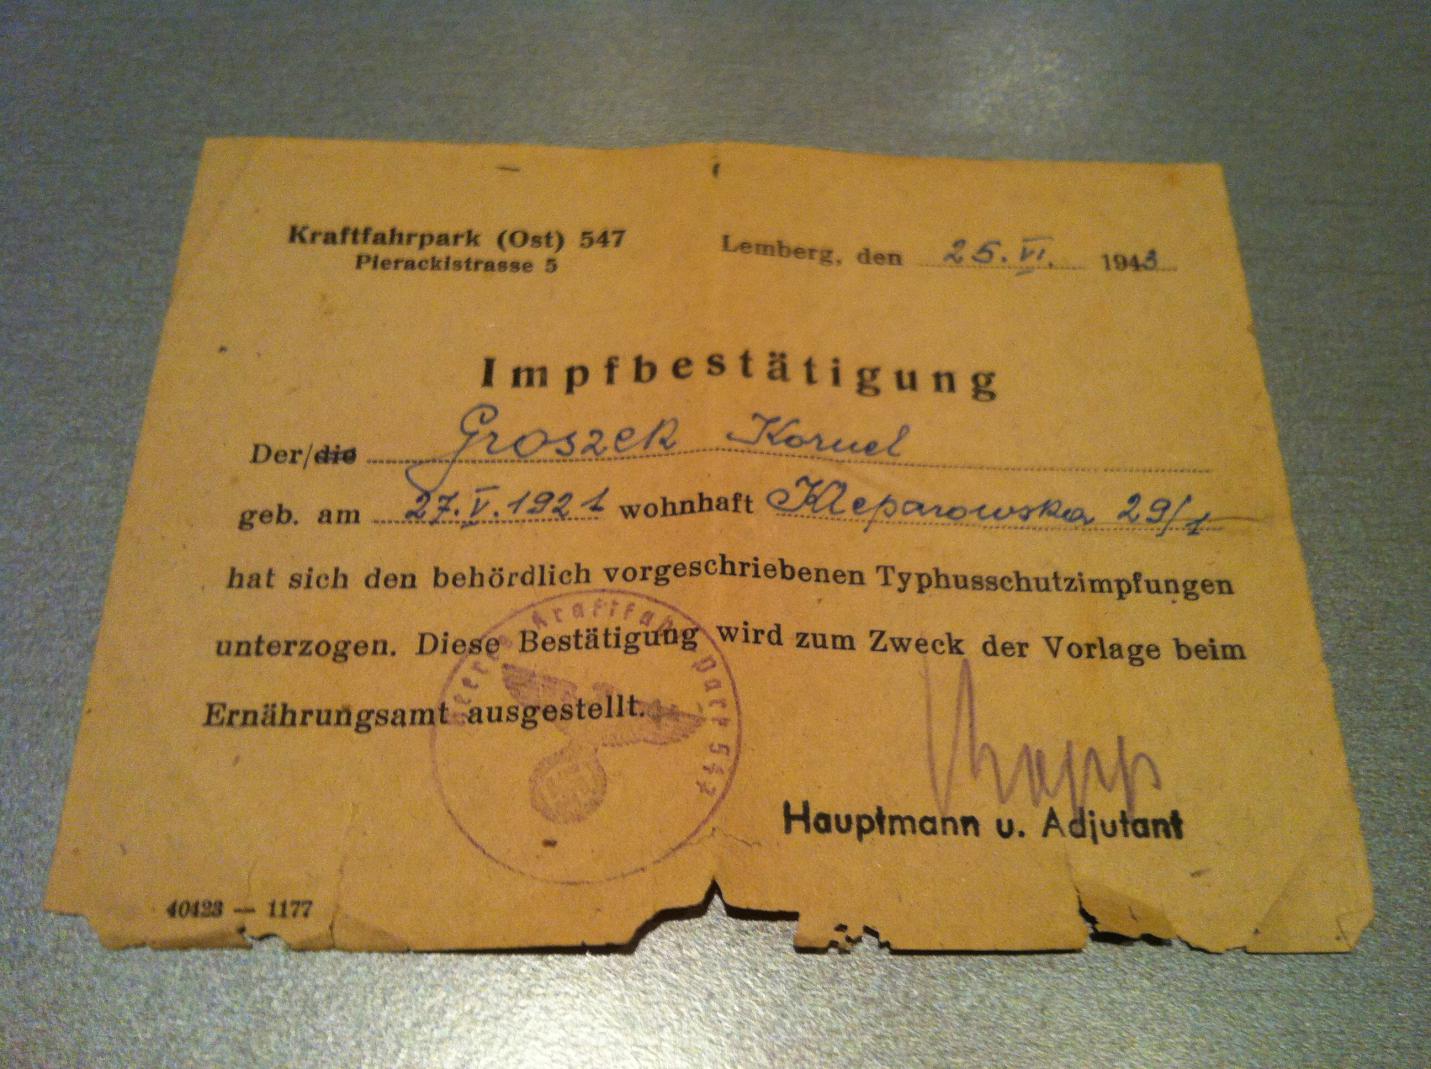 Kraftfahrpark (Ost) 547
Pierackistrasse 5
Lemberg, den 25. VI. 1943
Impfbestätigung
Der/die Groszek Kornel
geb. am 27. V. 1921 wohnhaft Kleparowska 29/1
hat sich den behördlich vorgeschriebenen Typhusschutzimpfungen
unterzogen. Diese Bestätigung wird zum Zweck der Vorlage beim
Ernährungsamt ausgestellt.
Heeres Kraftfahrpark 547
Hauptmann u. Adjutant
40423 — 1177